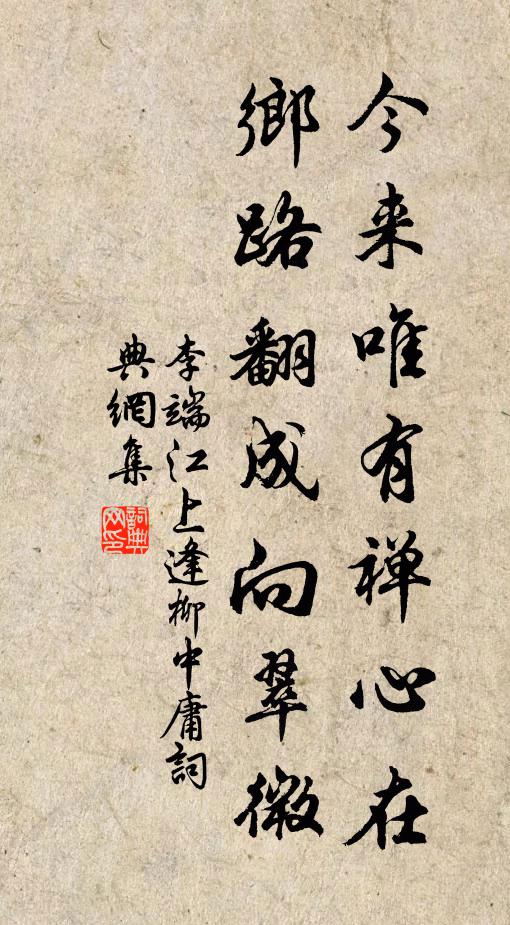 今来唯有禅心在
鄉路翻成向翠微
李端江上逢柳中庸詞
典網集
詞典网印